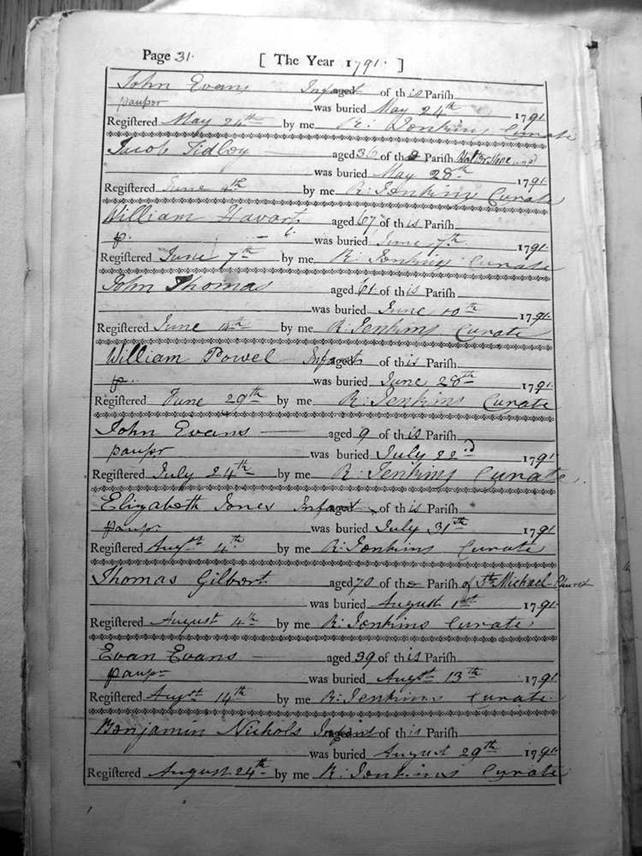 Page 31. [ The Year 1791. ]
John Evans Infant aged of this Parish
paupr was buried May 24th 1791.
Registered May 24th by me R: Jenkins Curate
Jacob aged 36 of the Parish
was buried May 28th 1791.
Registered June 4th by me R: Jenkins Curate
William Havort aged 67 of this Parish
p. was buried June 7th 1791.
Registered June 7th by me R. Jenkins Curate
John Thomas aged 61 of this Parish
was buried June 10th 1791.
Registered June by me R. Jenkins Curate
William Powel Infant aged of this Parish
p. was buried June 28th 1791.
Registered June 29th by me R. Jenkins Curate
John Evans aged 9 of this Parish
paupr was buried July 22d 1791.
Registered July 24th by me R Jenkins Curate
Elizabeth Jones Infant aged of this Parish
paupr was buried July 31th 1791
Registered Augst 4th by me R: Jenkins Curate
Thomas Gilbert aged 70 of the Parish of St. Michael-Church
was buried August 1st 1791.
Registered August 4th by me R: Jenkins Curate
Evan Evans aged 39 of this Parish
paupr was buried Augst 13th 1791.
Registered Augst 14th by me R: Jenkins Curate
Benjamin Nichols Infant aged of this Parish
was buried August 29th 1791.
Registered August 24th by me R: Jenkins Curate